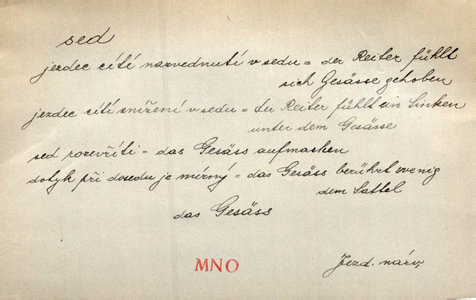 sed
jezdec cítí nazvednutí v sedu = der Reiter fühlt
sich Gesässe gehoben
jezdec cítí snížení v sedu = der Reiter fühlt ein Sinken
unter dem Gesässe
sed rozevříti = das Gesäss aufmachen
dotyk při dosedu je mírný = das Gesäss berührt wenig
dem Sattel
das Gesäss
MNO
Jezd. názv.